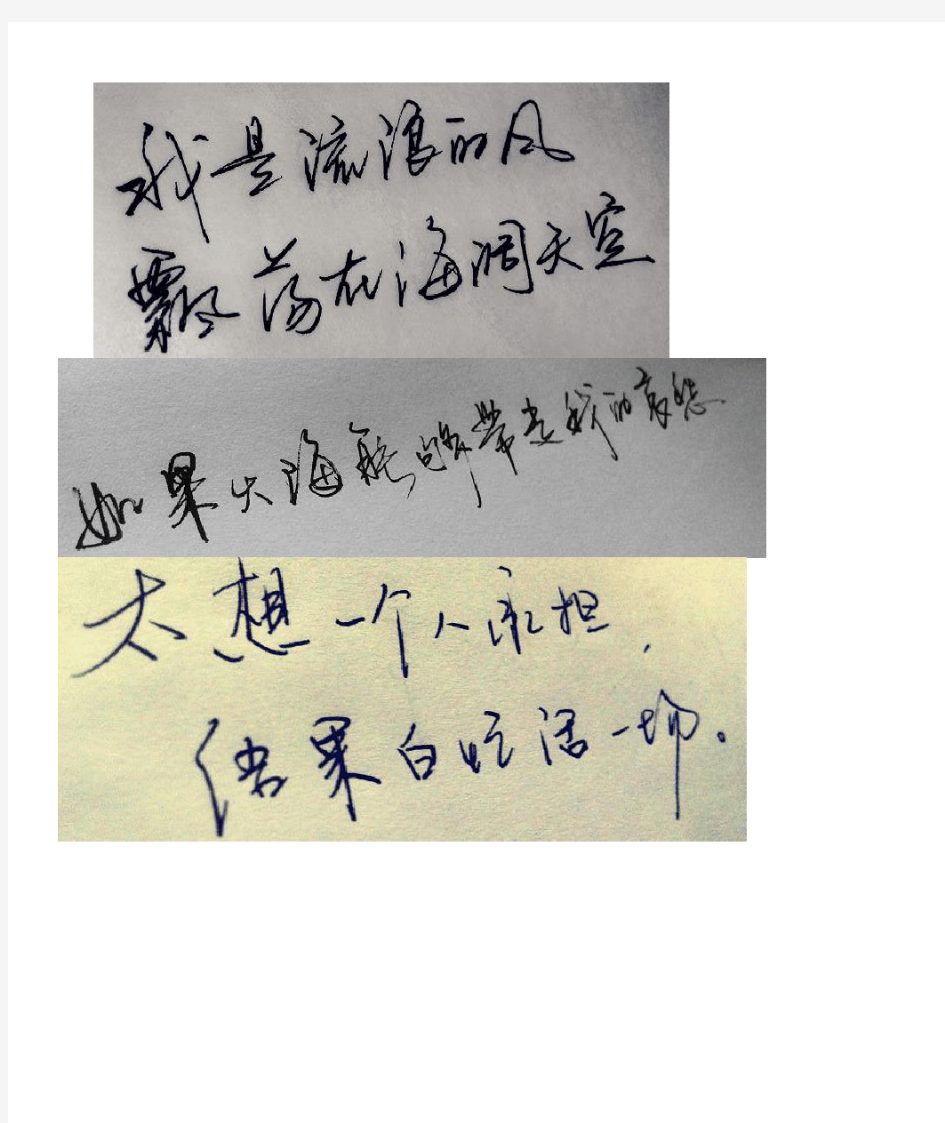 我是流浪的风
飘荡在海阔天空
如果大海能够带走我的哀愁
太想一个人承担,
结果白吃活一切。